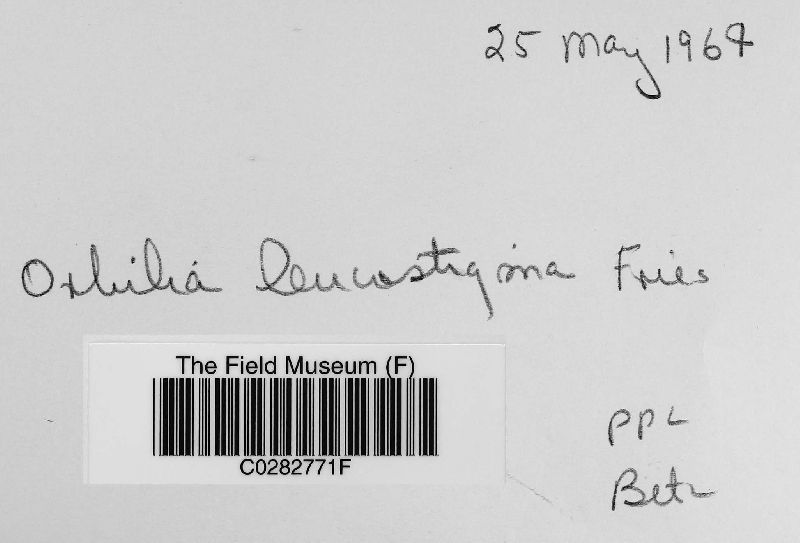 25 May 1964
Orbilia leucostigma Fries
The Field Museum (F)
C0282771F
PPL
Betz